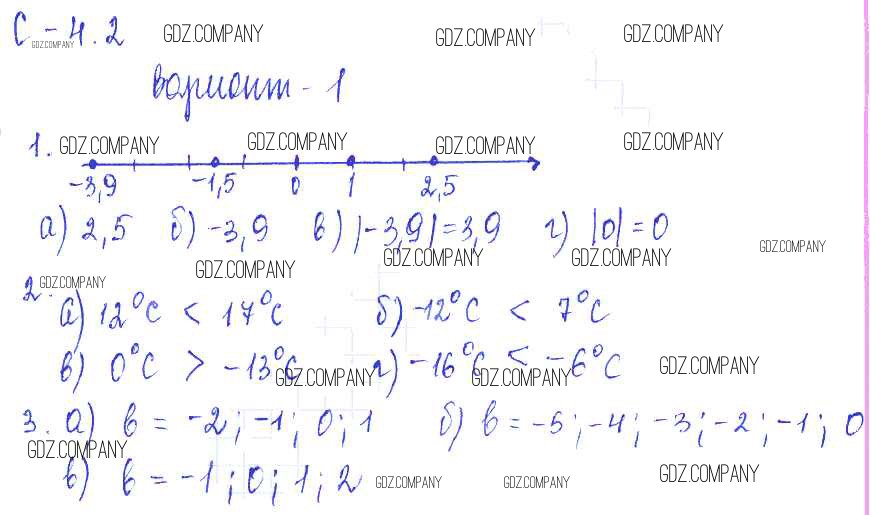 С-4.2 GDZ.COMPANY GDZ.COMPANY GDZ.COMPANY GDZ.COMPANY
вариант-1
1. GDZ.COMPANY GDZ.COMPANY GDZ.COMPANY GDZ.COMPANY
-3,9 -1,5 0 1 2,5
а) 2,5 б) -3,9 в) |-3,9|=3,9 г) |0|=0
GDZ.COMPANY GDZ.COMPANY GDZ.COMPANY GDZ.COMPANY
2. GDZ.COMPANY
а) 12°C < 17°C б) -12°C < 7°C
в) 0°C > -13°C г) -16°C < -6°C
GDZ.COMPANY GDZ.COMPANY GDZ.COMPANY
3. а) в = -2; -1; 0; 1 б) в = -5; -4; -3; -2; -1; 0
GDZ.COMPANY
в) в = -1; 0; 1; 2 GDZ.COMPANY GDZ.COMPANY GDZ.COMPANY